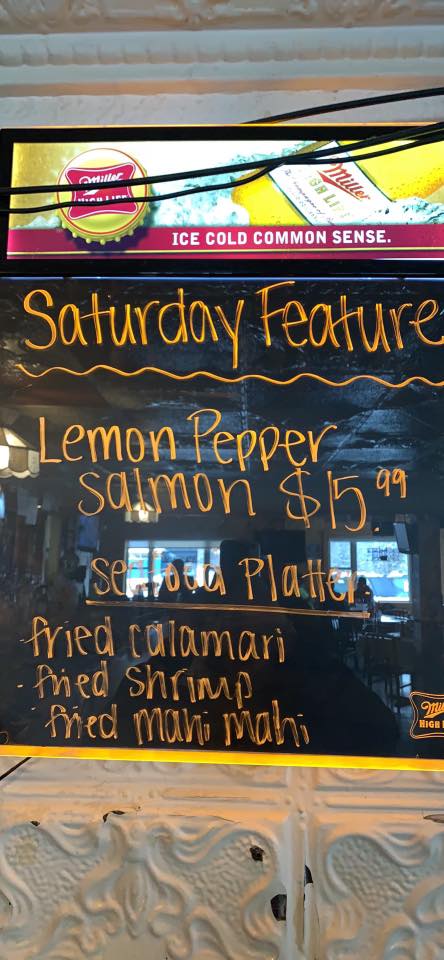 Miller
HIGH LIFE
Miller
HIGH LIFE
ICE COLD COMMON SENSE.
Saturday Feature
Lemon Pepper
Salmon $15.99
seafood Platter
fried calamari
· fried shrimp
· fried mahi mahi
HIGH